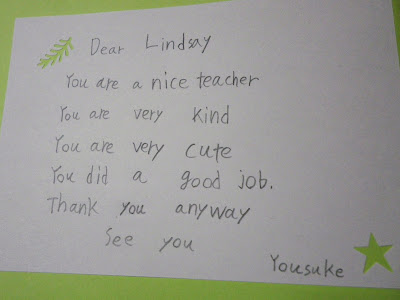 Dear Lindsay
You are a nice teacher
You are very kind
You are very cute
You did a good job.
Thank you anyway
See you
Yousuke